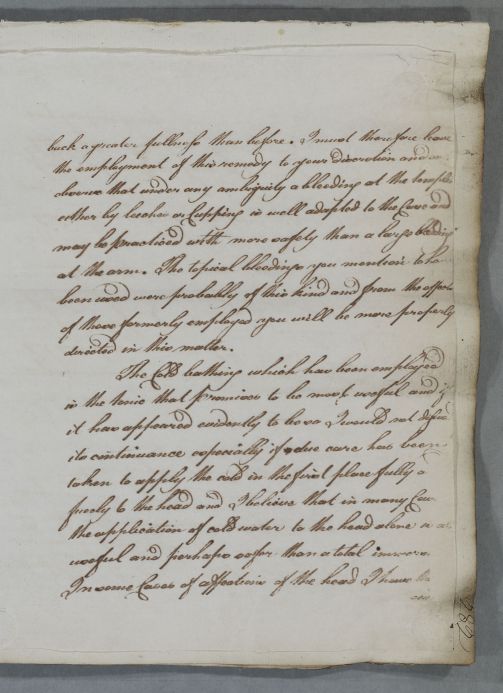 back a greater fullness than before. I must therefore leave
the employment of this remedy to your discretion and
observe that under any ambiguity a bleeding at the temples
either by leeches or Cupping is well adapted to the Case and
may be practised with more safety than a large bleeding
at the arm. The topical bleedings you mention to have
been used were probably of this kind and from the effects
of those formerly employed you will be more properly
directed in this matter.
The Cold bathing which has been employed
is the tonic that promises to be most useful and if
it has appeared evidently to be so I would not
its continuance especially if due care has been
taken to apply the cold in the first place fully &
freely to the head and I believe that in many Cases
the application of cold water to the head alone is as
useful and perhaps safer than a total immersion.
In some Cases of affections of the head I have
682